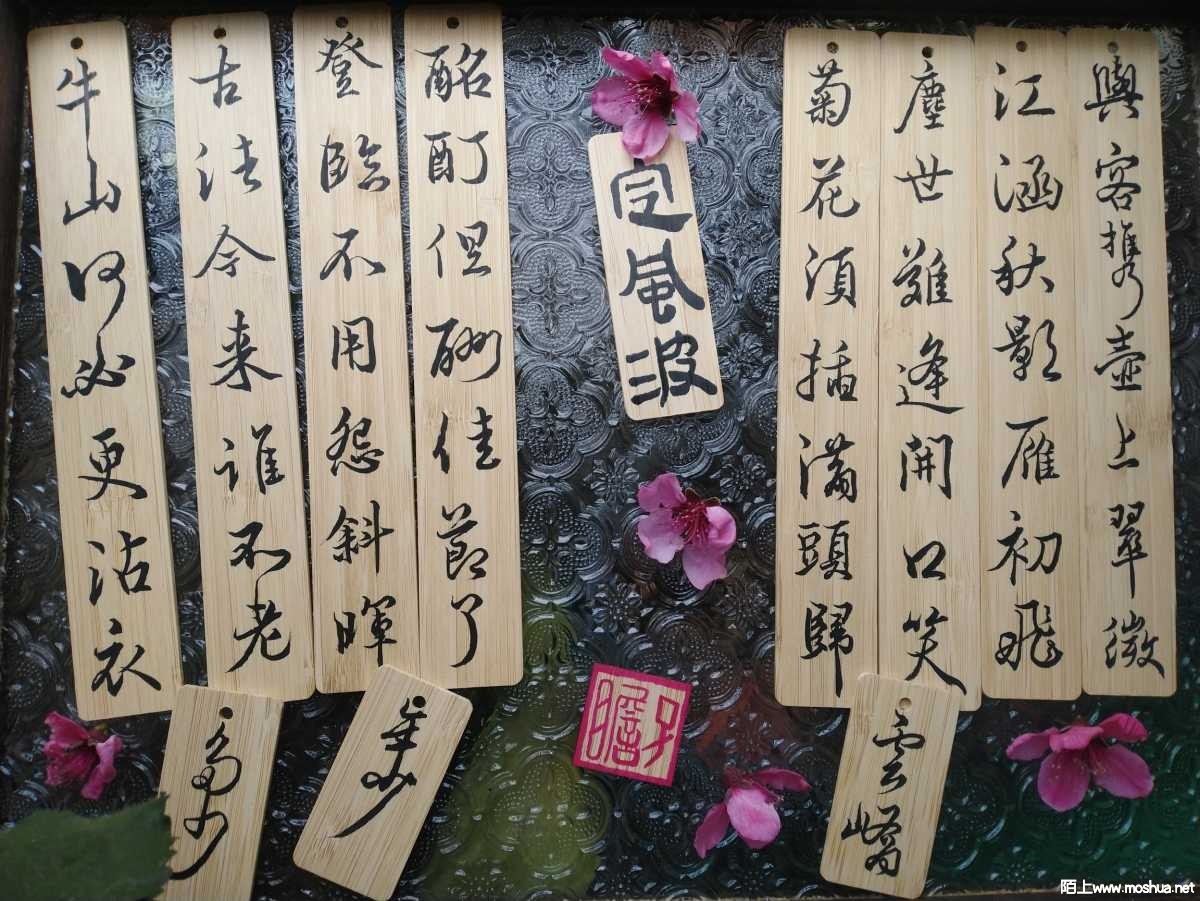 與客携壺上翠微
江涵秋影雁初飛
塵世難逢開口笑
菊花須插滿頭歸
雲嶠
定風波
子瞻
酩酊但酬佳節了
登臨不用怨斜暉
古往今来誰不老
牛山何必更沾衣
年少
多少
陌上www.moshua.net